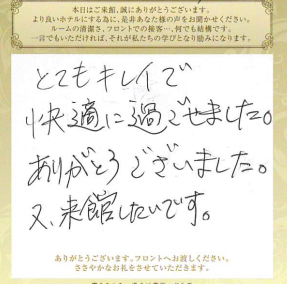 本日はご来館、誠にありがとうございます。
より良いホテルにする為に、是非あなた様の声をお聞かせください。
ルームの清潔さ、フロントでの接客…、何でも結構です。
一言でもいただければ、それが私たちの学びとなり励みになります。
とてもキレイで
快適に過ごせました。
ありがとうございました。
又、来館したいです。
ありがとうございます。フロントへお渡しください。
ささやかなお礼をさせていただきます。